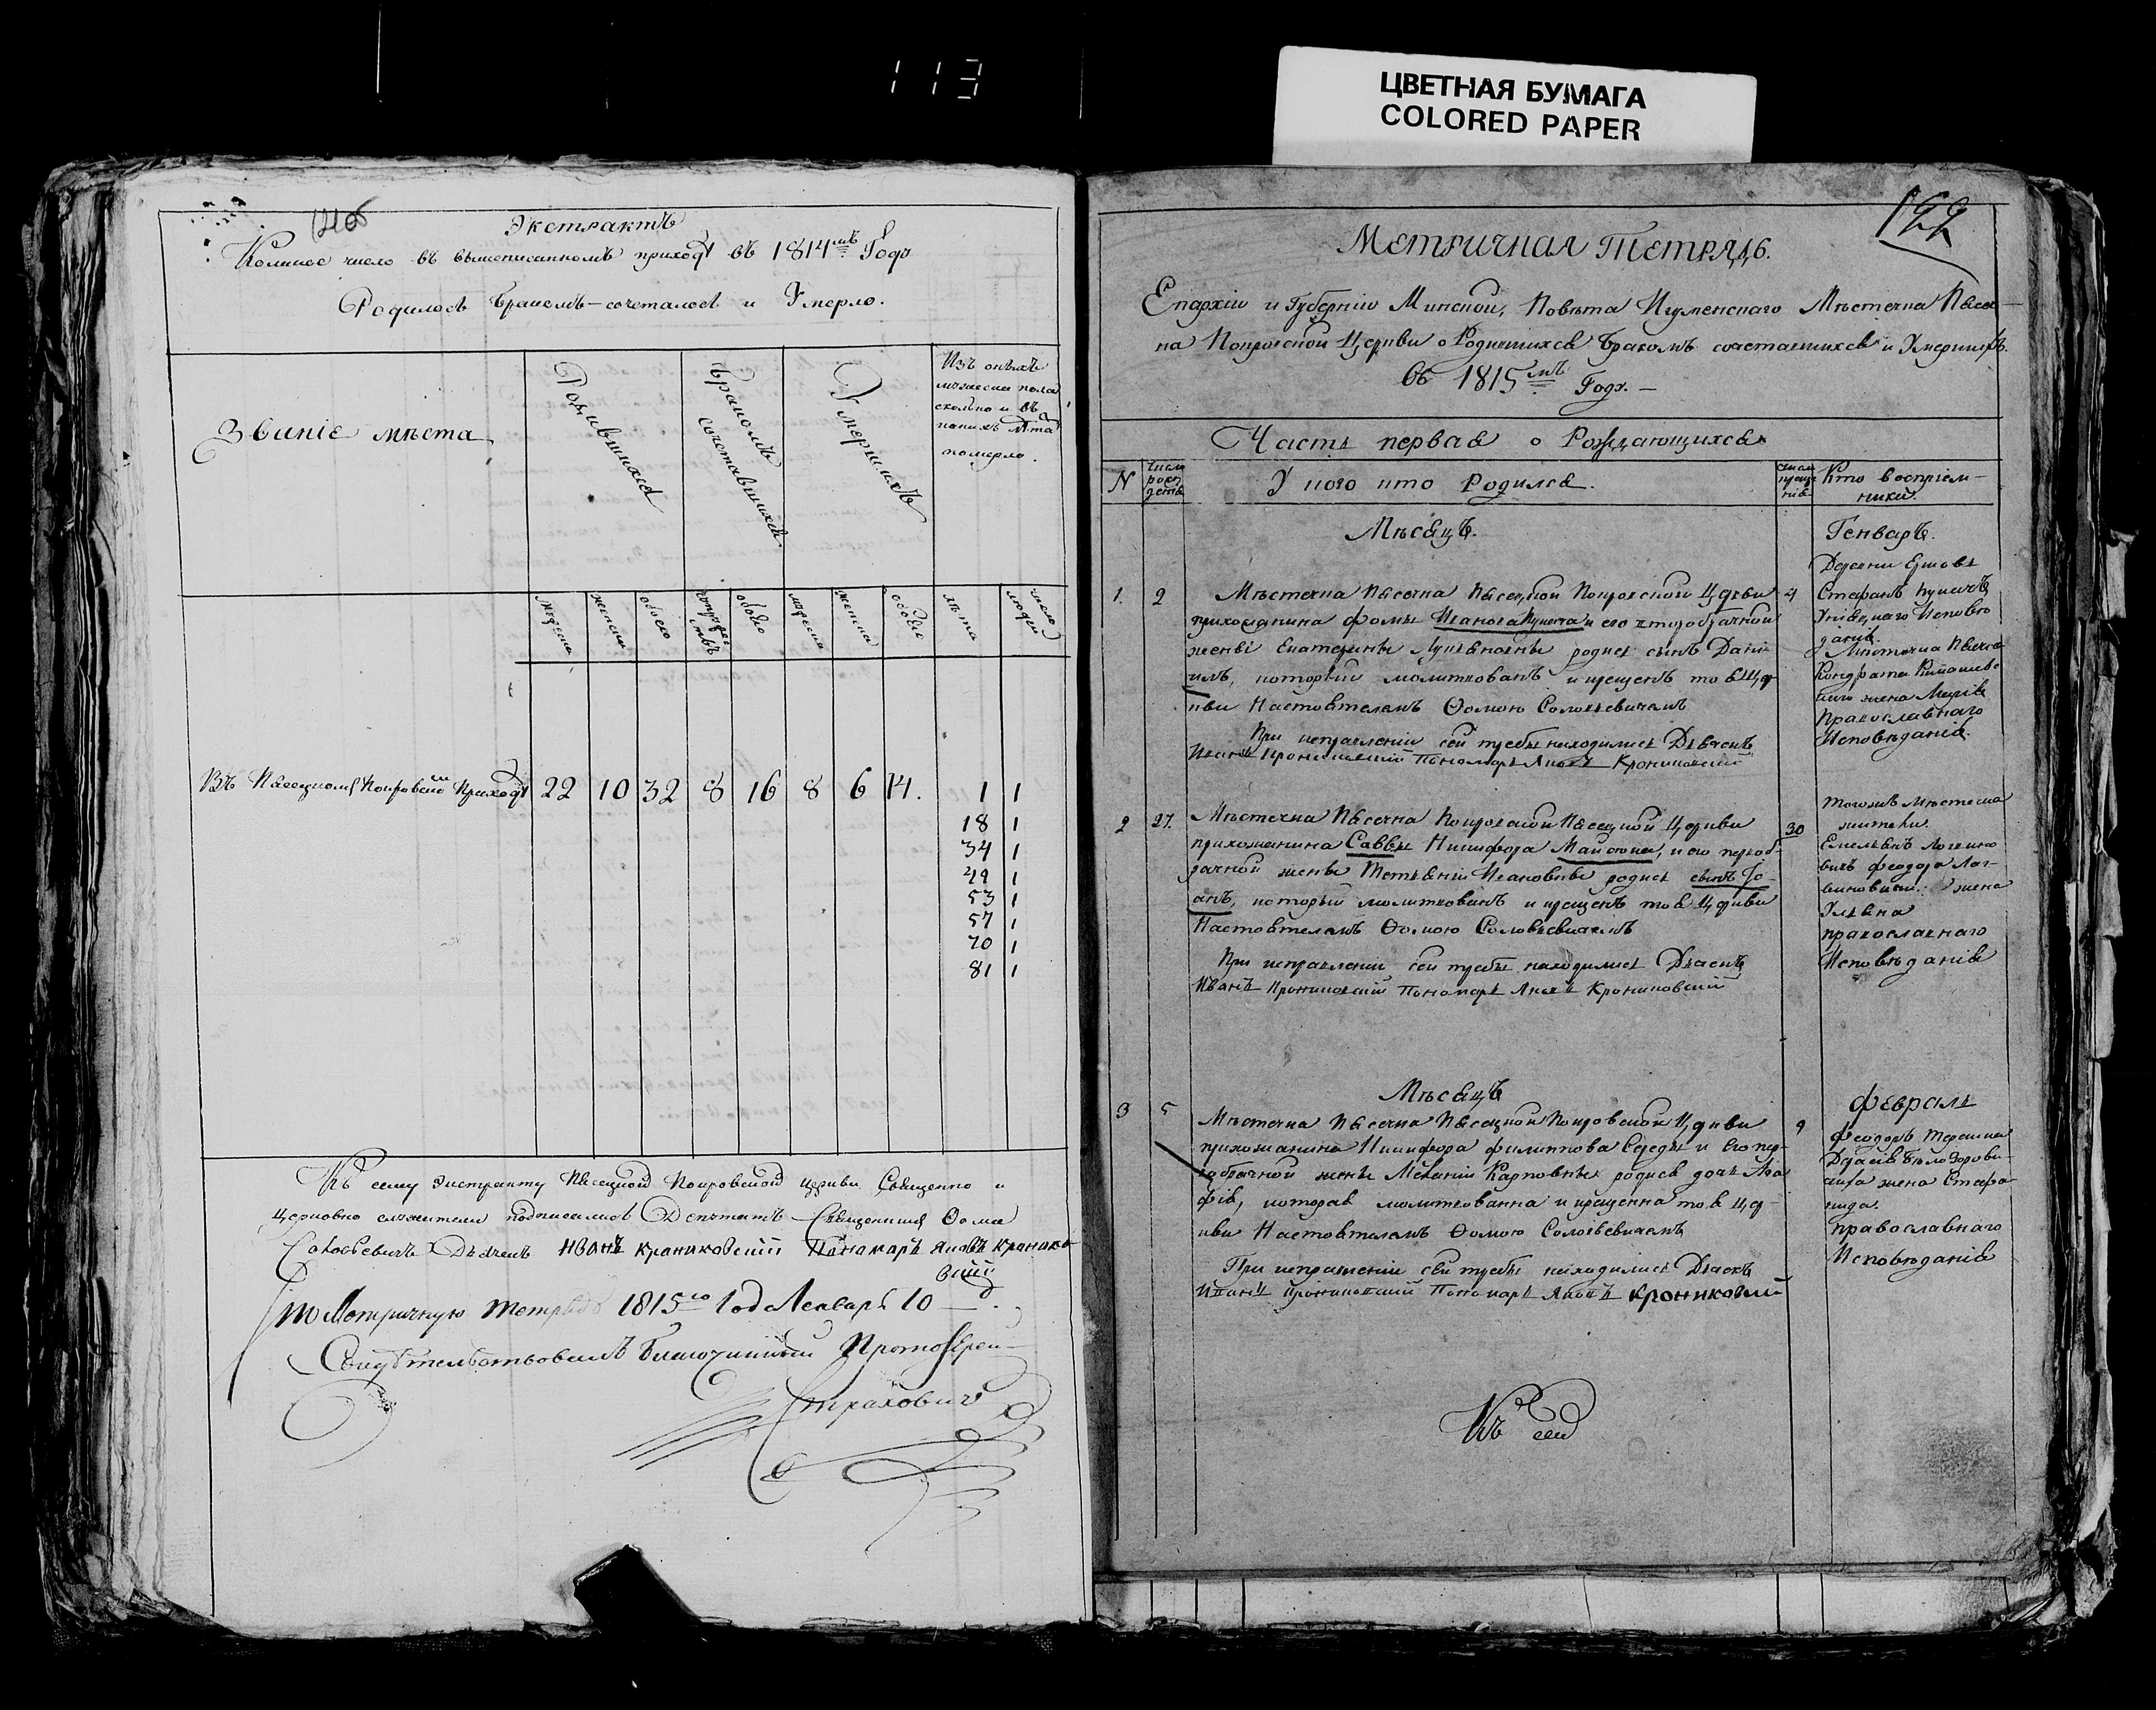 113
ЦВЕТНАЯ БУМАГА
COLORED PAPER
Экстрактъ
Коликое число въ вышеписанномъ приходѣ въ 1814мъ Годѣ
Родилось Бракомъ-сочеталось и Умерло.
Званіе мѣста
Родившихся
Бракомъ сочетавшихся
Умершихъ
Изъ оныхъ
мужеска пола
сколько и въ
какихъ Лѣта
померло.
мужеска
женска
обоего
обоего
мужеска
женска
обоего
лѣта
число людей
Въ Пясецкомъ Покровской Приходѣ 22 10 32 8 16 8 6 14. 1 1
18 1
34 1
49 1
53 1
57 1
70 1
81 1
Къ сему Экстракту Пясецкой Покровской Церкви Священно и
церковно служители подписались Священникъ Ѳома
Соловьевичъ Дьячекъ Иванъ Крониковскій Пономаръ Яковъ Кронико
вскій
Метричную Тетрадь 1815го Года Генваря 10
Свидѣтельствовалъ Благочинный Протоіерей
Страховичъ
199
Метричная Тетрадь.
Епархіи и Губерніи Минской, Повѣта Игуменскаго Мѣстечка Пясеч-
на Покровской Церкви о Родившихся Бракомъ сочетавшихся и Умершихъ.
Въ 1815мъ Годѣ. –
Часть первая о Рождающихся
N
Число рожденія
У кого кто Родился.
Число крещенія
Кто воспріем-
ники.
Мѣсяцъ.
Генварь.
1. 2
Мѣстечка Пясечна Пясецкой Покровской Церкви
прихожанина Фомы Иванова Кунича и его второбрачной
жены Екатерины Лукьяновны родися сынъ Дані-
илъ, который молитвованъ и крещенъ той Цер-
кви Настоятелемъ Ѳомою Соловьевичемъ
При исправленіи сей требы находились Дьячекъ
Иванъ Крониковскій Пономарь Яковъ Крониковскій
4
Деревни
Стефанъ Куничъ
Уніяцкаго Исповѣ
данія.
Мѣстечка Пясечна
Кондрата
жена Марія
Православнаго
Исповѣданія.
2 27.
Мѣстечка Пясечна Покровской Пясецкой Церкви
прихожанина Саввы Никифора и его первоб-
рачной жены Татьяны Ивановны родися сынъ Іо-
анъ, который молитвованъ и крещенъ той Церкви
Настоятелемъ Ѳомою Соловьевичемъ
При исправленіи сей требы находились Дьячекъ
Иванъ Крониковскій Пономарь Яковъ Крониковскій
30
Тогожъ Мѣстечка
жители.
Емельянъ
вичъ Феодора Лог-
виновича жена
Ульяна
православнаго
Исповѣданія
Мѣсяцъ
Февраль
3 5
Мѣстечка Пясечна Пясецкой Покровской Церкви
прихожанина Никифора Филиппова Середы и его пер-
вобрачной жены Меланіи Карповны родися дочь Ага
фія, которая молитвованна и крещенна той Цер-
кви Настоятелемъ Ѳомою Соловьевичемъ
При исправленіи сей требы находились Дьячекъ
Иванъ Крониковскій Пономарь Яковъ Крониковскій
9
Феодоръ Терешка
жена Стефа-
нида.
православнаго
Исповѣданія
Къ сей